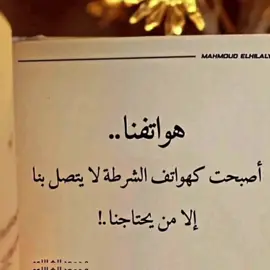 MAHMOUD ELHILALY
هواتفنا..
أصبحت كهواتف الشرطة لا يتصل بنا
إلا من يحتاجنا.!